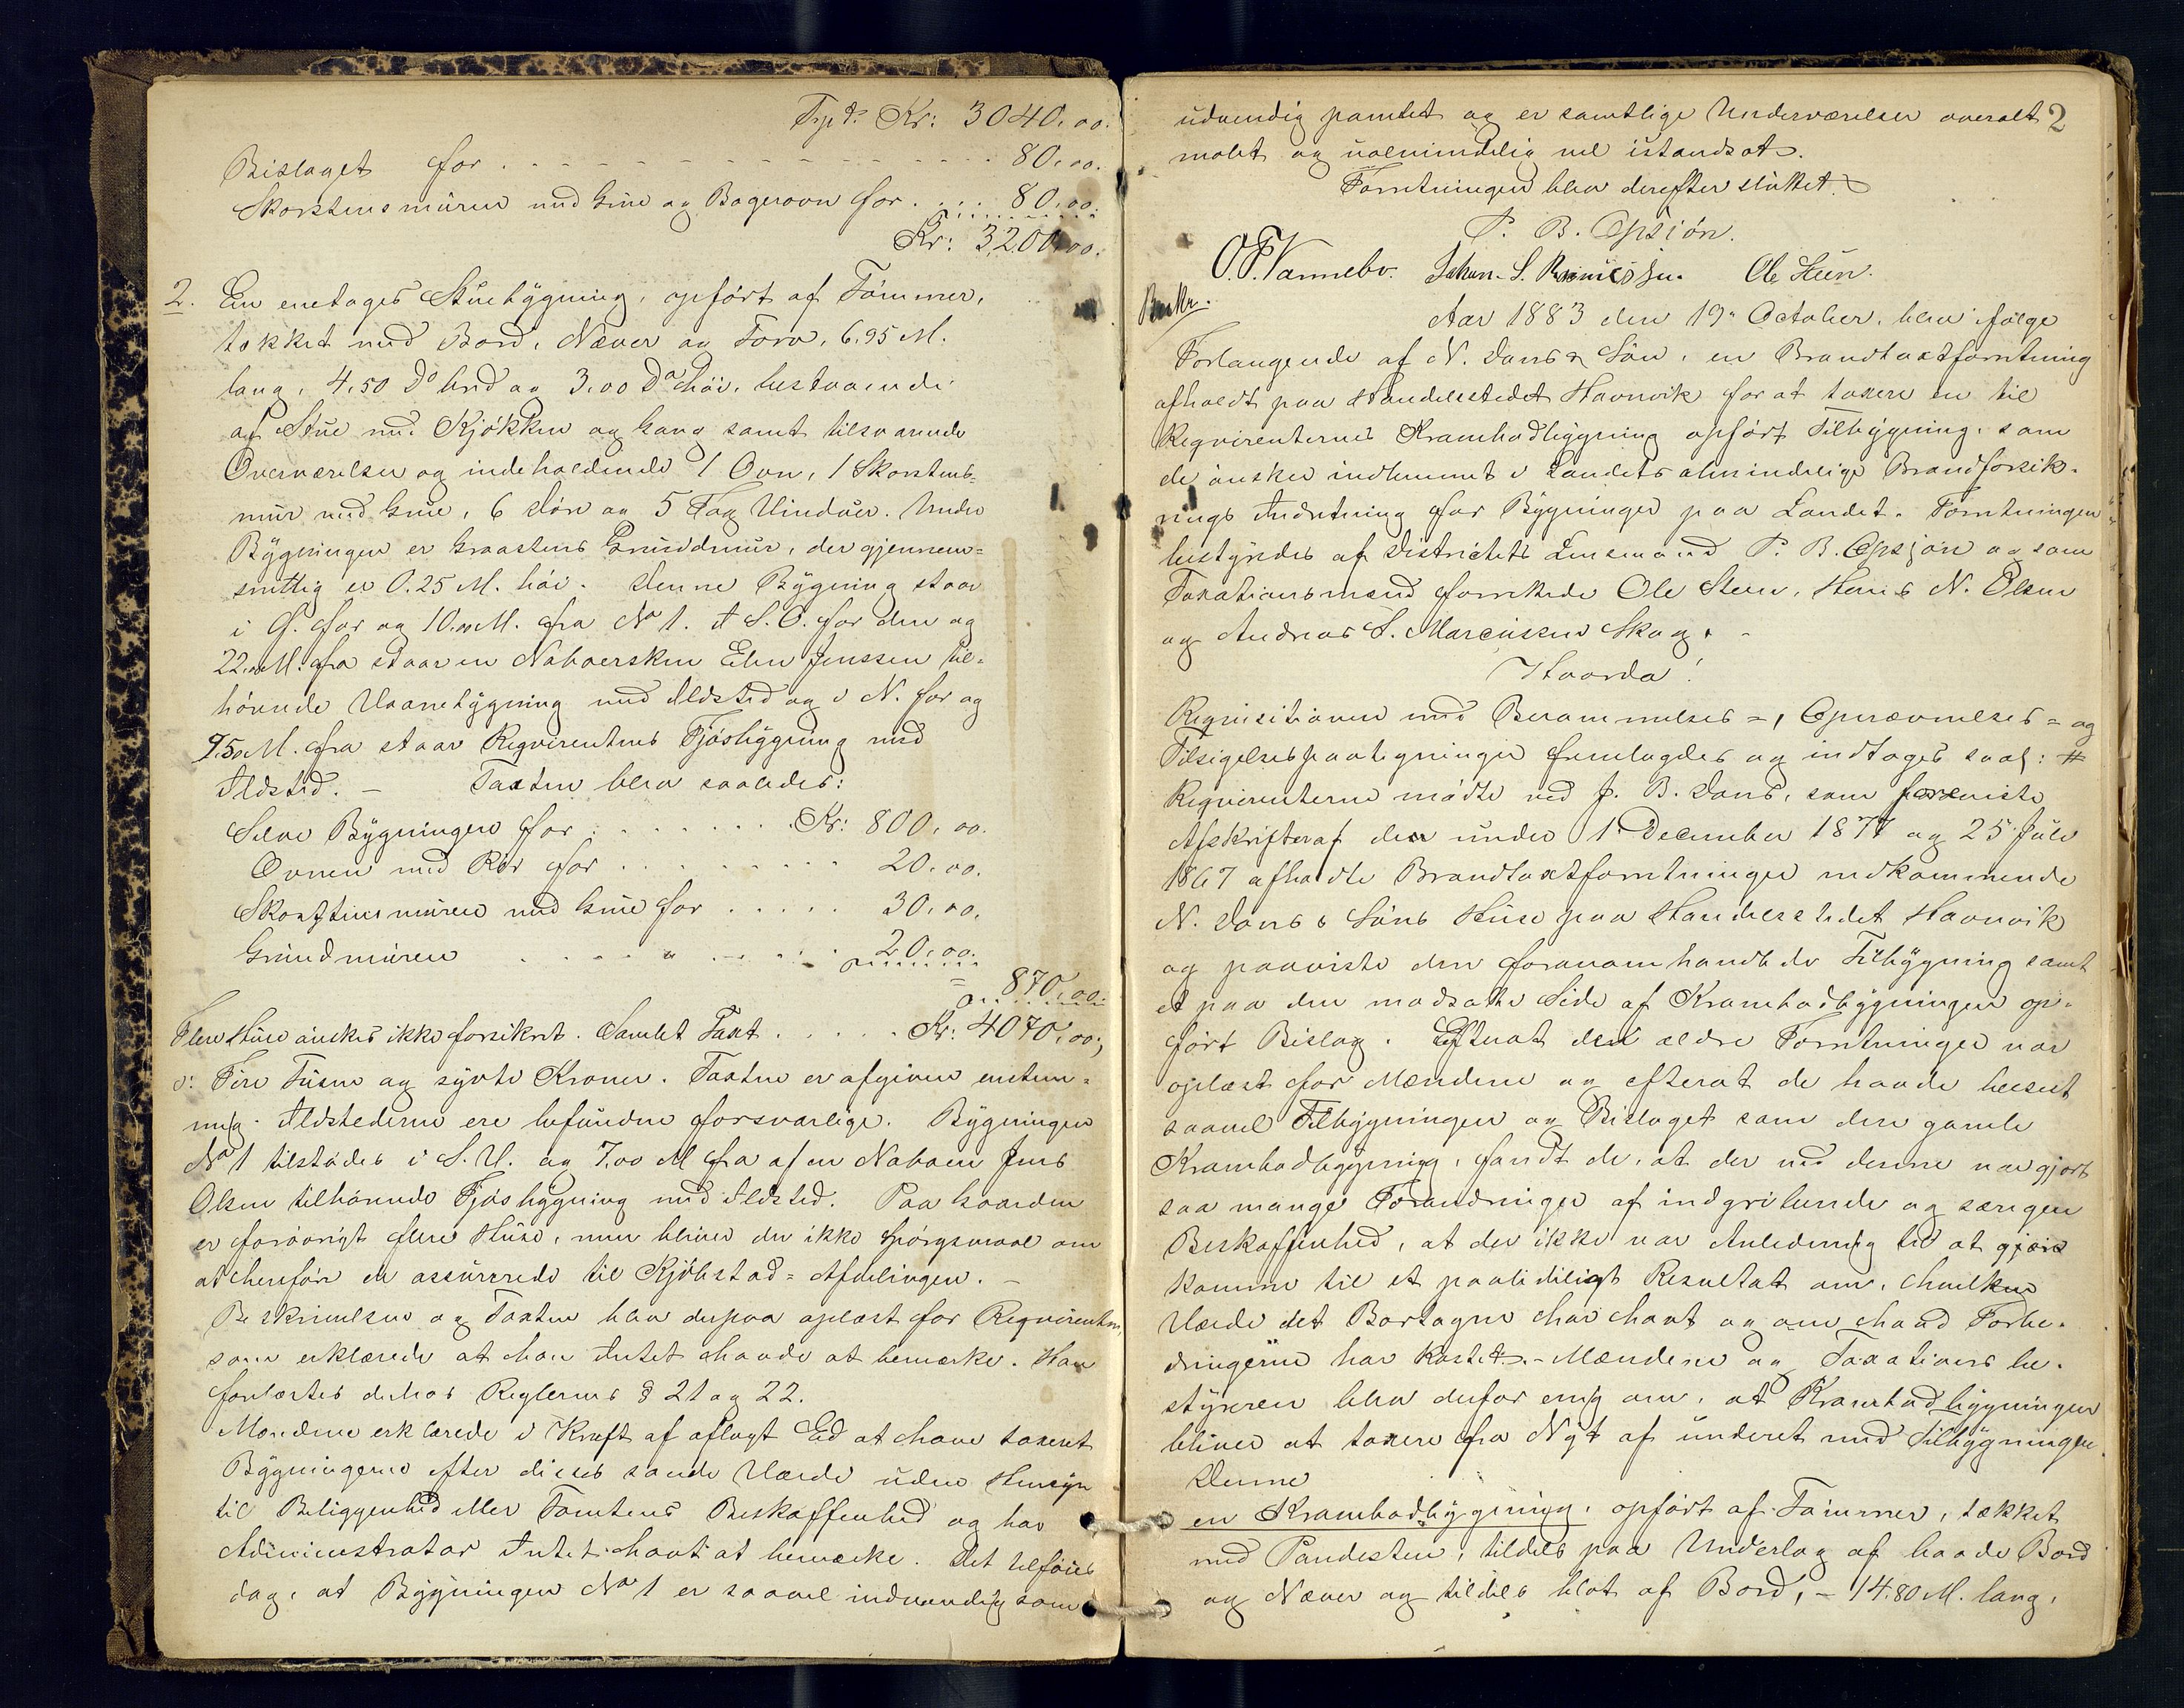 Trpt. Kr: 3040,00.
Bislaget for . . . . . . 80,00.
Skorstensmuren med Grue og Bagerovn for . . . 80,00.
Kr: 3200,00.
2. En enetages Stuebygning, opført af Tømmer,
tækket med Bord, Næver og Torv, 6,95 M.
lang, 4,50 Do bred og 3,00 Do høi, bestaaende
af Stue med Kjøkken og Gang samt tilsvarende
Overværelser og indeholdende 1 Ovn, 1 Skorstens-
mur med Grue, 6 Døre og 5 Fag Vinduer. Under
Bygningen er Graastens Grundmur, der gjennem-
snittlig er 0.25 M. høi. Denne Bygning staar
i S. for og 10,00 M. fra No 1. I S.O. for den og
22,00 M. fra staar en Naboersken Elen Jenssen til-
hørende Vaanebygning med Ildsted og i N. for og
9,50 M. fra staar Reqvirentens Fjøsbygning med
Ildsted. – Taxten blev saaledes:
Selve Bygningen for . . . . . . Kr: 800,00.
Ovnen med Rør for . . . . . . 20,00.
Skorstensmuren med Grue for . . . . . 30,00.
Grundmuren . . . . " . . . . 20,00.
= 870,00.
Flere Huse ønskes ikke forsikret. Samlet Taxt . . . . . Kr: 4070,00;
o: Fire Tusen og sytti Kroner. Taxten er afgiven enstem-
mig. Ildstederne ere befundne forsvarlige. Bygningen
No 1 tilstødes i S.V. og 7,00 M fra af en Naboen Jens
Olsen tilhørende Fjøsbygning med Ildsted. Paa Gaarden
er forøvrigt flere Huse, men bliver der ikke Spørgsmaal om
at henføre de assurerede til Kjøbstad-Afdelingen. –
Beskrivelsen og Taxten blev derpaa oplæst for Reqvirenten,
som erklærede at han Intet havde at bemærke. Han
forelæstes derhos Reglernes § 21 og 22.
Mændene erklærede i Kraft af aflagt Ed at have taxeret
Bygningerne efter disses sande Værdi uden Hensyn
til Beliggenhed eller Tomtens Beskaffenhed og har
Administrator Intet havt at bemærke. Det tilføies
dog, at Bygningen No 1 er saavel indvendig som
2
udvendig pantet og er samtlige Underværelser overalt
malet og ualmindelig vel istandsat.
Forretningen blev derefter sluttet.
P. B. Opsjøn.
O. P. Vannebo. Johan S. Ole Steen.
Beskr.
Aar 1883 den 19. October, blev ifølge
Forlangende af N. Dons & Søn, en Brandtaxtforretning
afholdt paa Handelsstedet Havnvik for at taxere en til
Reqvirenternes Krambodbygning opført Tilbygning, som
de ønsker indlemmet i Landets almindelige Brandforsik-
rings Indretning for Bygninger paa Landet. Forretningen
bestyrdes af Districtets Lensmand P. B. Opsjøn og som
Taxationsmænd fremkede Ole Steen, Hans N. Olsen
og Andreas S. Marcussen Skog. –
Hvorda!
Reqvisitionen med Berammelses-, Opnævnelses- og
Tilsigelsespaategninger fremlagdes og indtages saal: #
Reqvirenterne mødte ved J. B. Dons, som foreviste
Afskrifter af den under 1. December 1877 og 25 Juli
1867 afholdte Brandtaxtforretninger vedkommende
N. Dons & Søns Huse paa Handelsstedet Havnvik
og paaviste den foranomhandlede Tilbygning samt
et paa den modsatte Side af Krambodbygningen op-
ført Bislag. Efterat den ældre Forretninger var
oplæst for Mændene og efterat de havde beseet
saavel Tilbygningen og Bislaget som den gamle
Krambodbygning, fandt de, at der med denne var gjort
saa mange Forandringer af indgribende og særegen
Beskaffenhed, at der ikke var Anledning til at
komme til et paalideligt Resultat om, hvilken
Værdi det Bortagne har havt og om hvad Forbe-
dringerne har kostet. – Mændene og Taxations be-
styreren blev derfor enig om, at Krambodbygningen
bliver at taxere fra Nyt af underet med Tilbygningen.
Denne
en Krambodbygning, opført af Tømmer, tækket
med Pandesten, tildels paa Underlag af baade Bord
og Næver og tildels blot af Bord, – 14.80 M. lang,